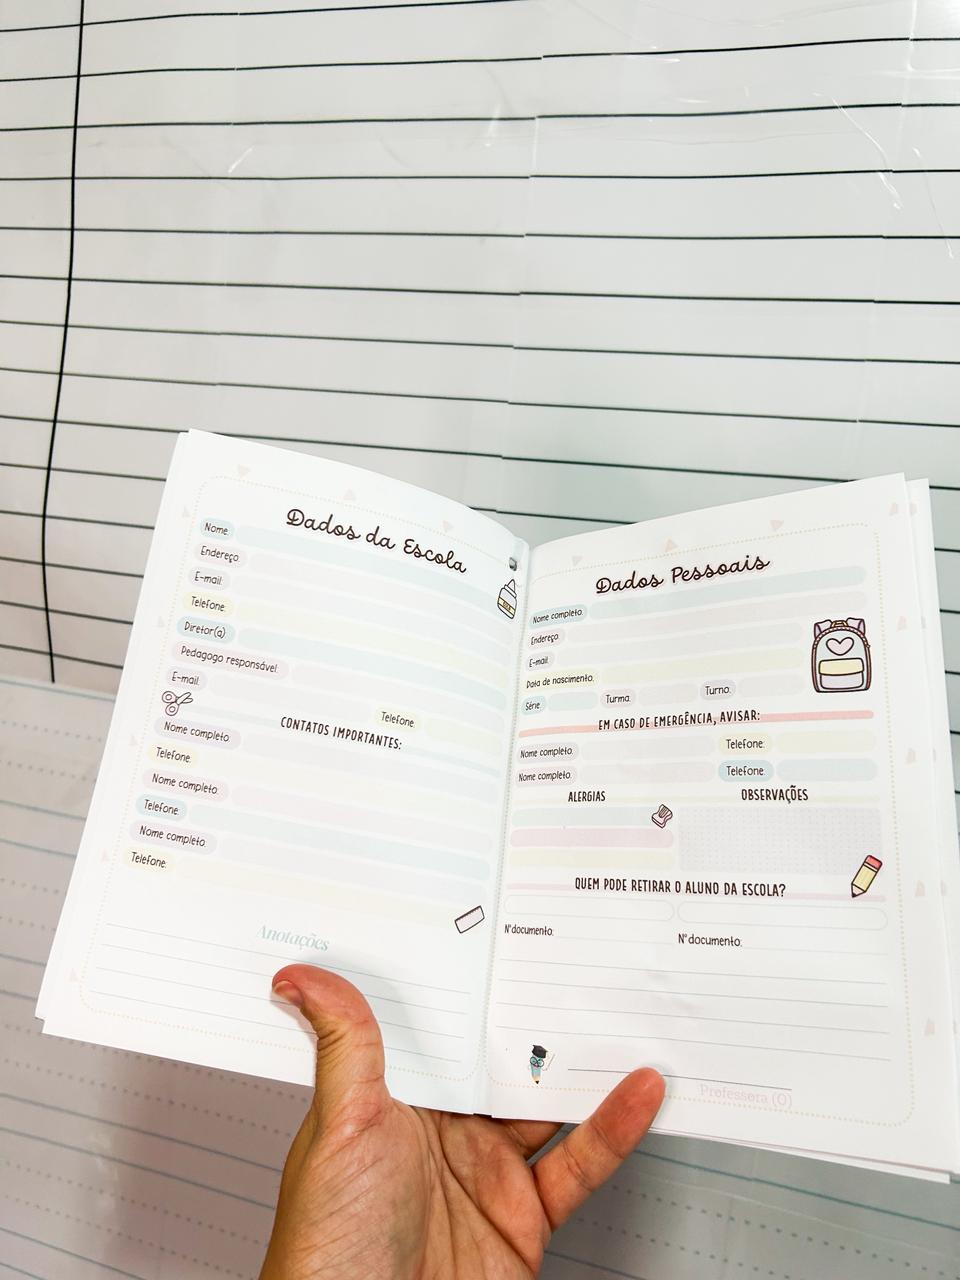 Dados da Escola
Nome:
Endereço:
E-mail:
Telefone:
Diretor(a)
Pedagogo responsável:
E-mail:
Telefone:
CONTATOS IMPORTANTES:
Nome completo:
Telefone:
Nome completo:
Telefone:
Nome completo:
Telefone:
Anotações
Dados Pessoais
Nome completo:
Endereço:
E-mail:
Data de nascimento:
Série: Turma: Turno:
EM CASO DE EMERGÊNCIA, AVISAR:
Nome completo: Telefone:
Nome completo: Telefone:
ALERGIAS OBSERVAÇÕES
QUEM PODE RETIRAR O ALUNO DA ESCOLA?
Nº documento: Nº documento:
Professora (O)